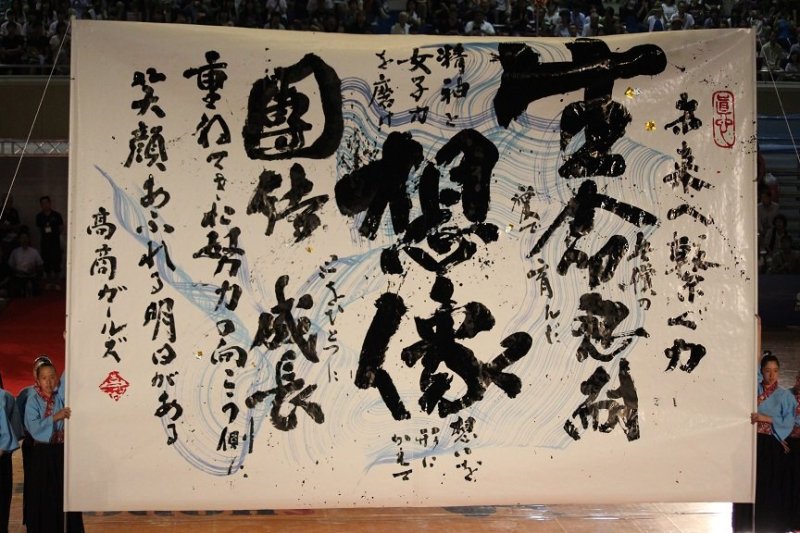 未来へ繋ぐ力
生命忍耐
育んだ
精神と
女子力
を磨け
想像
想いを
形に
かえて
團結 成長
心をひとつに
重ねてきた努力の向こう側に
笑顔あふれる明日がある
高商ガールズ